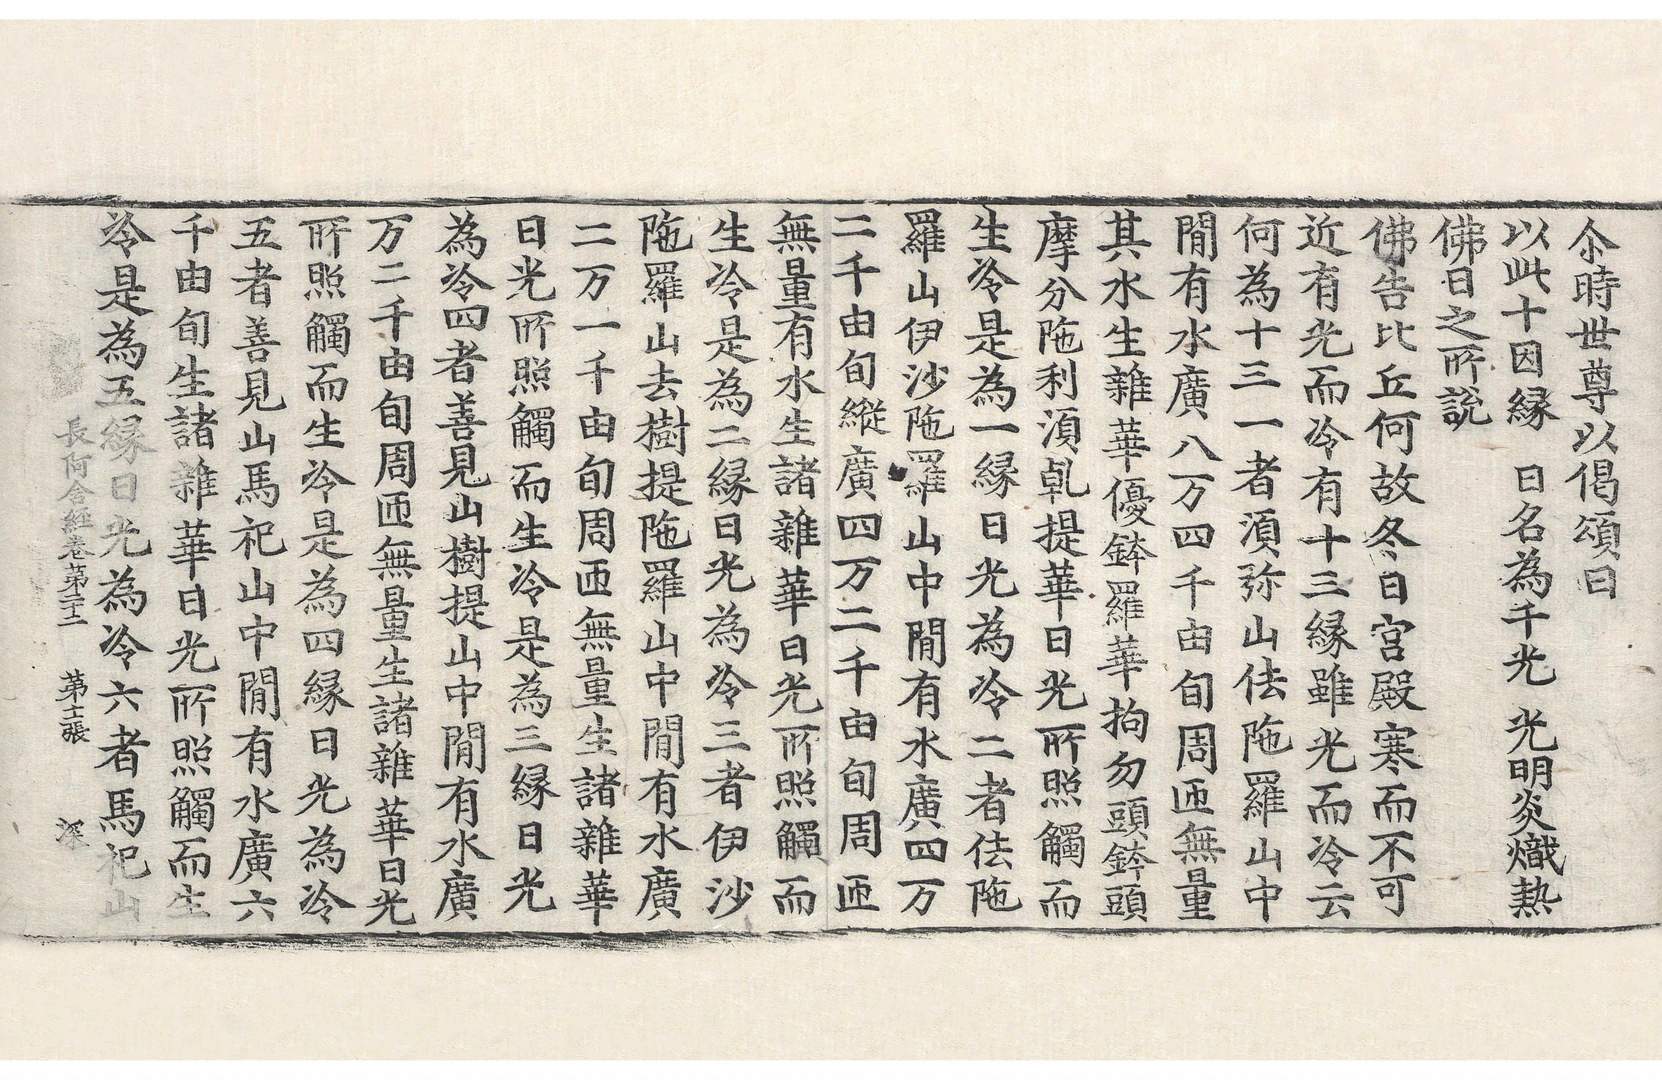 尒時世尊以偈頌曰
以此十因緣　日名為千光　光明炎熾熱
佛日之所說
佛告比丘何故冬日宮殿寒而不可
近有光而冷有十三緣雖光而冷云
何為十三一者湏弥山佉陁羅山中
閒有水廣八万四千由旬周匝無量
其水生雜華優鉢羅華拘勿頭鉢頭
摩分陁利湏乹提華日光所照觸而
生冷是為一緣日光為冷二者佉陁
羅山伊沙陁羅山中閒有水廣四万
二千由旬縱廣四万二千由旬周匝
無量有水生諸雜華日光所照觸而
生冷是為二緣日光為冷三者伊沙
陁羅山去樹提陁羅山中閒有水廣
二万一千由旬周匝無量生諸雜華
日光所照觸而生冷是為三緣日光
為冷四者善見山樹提山中閒有水廣
万二千由旬周匝無量生諸雜華日光
所照觸而生冷是為四緣日光為冷
五者善見山馬祀山中閒有水廣六
千由旬生諸雜華日光所照觸而生
冷是為五緣日光為冷六者馬祀山
長阿含經卷第二十二　第十二張　深